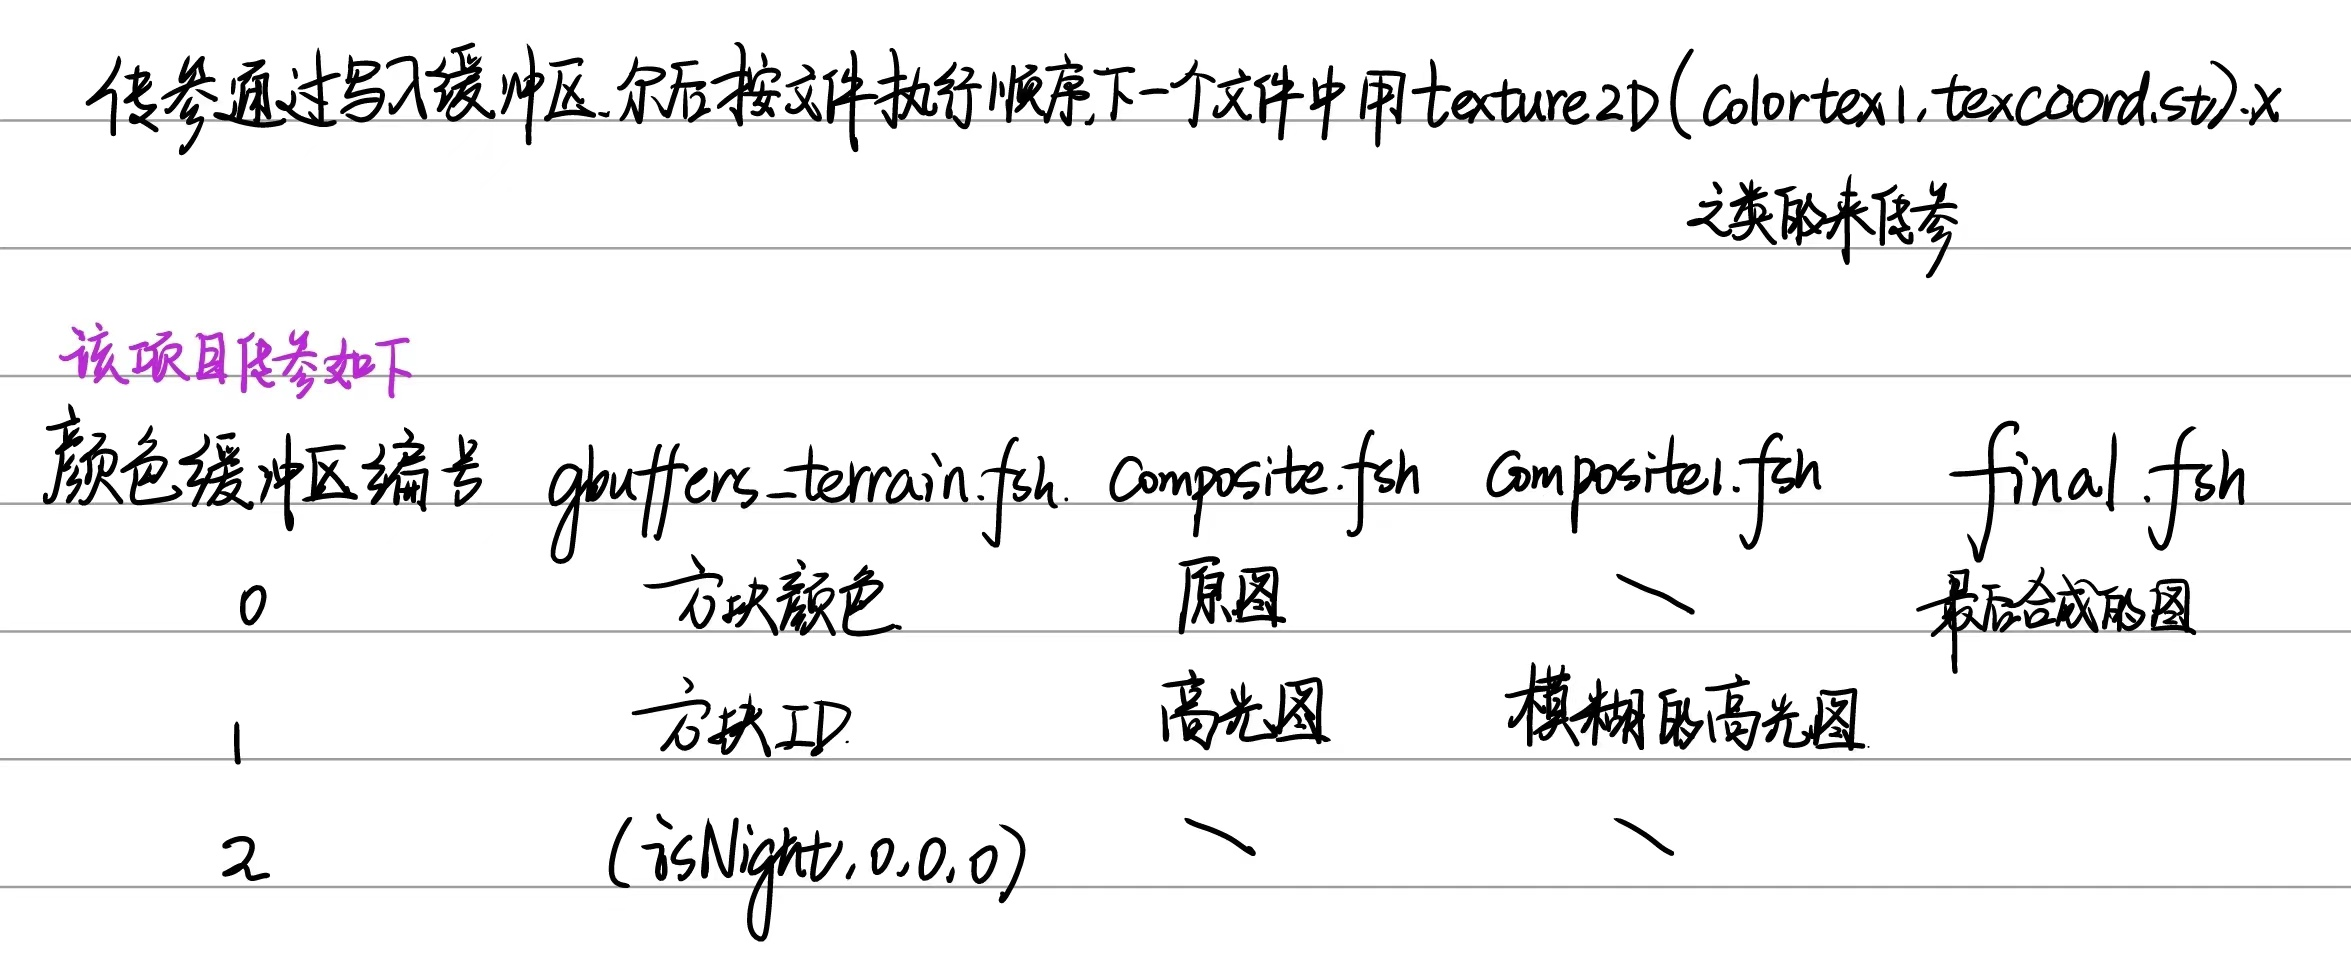 传参通过写入缓冲区.尔后按文件执行顺序,下一个文件中用texture2D(colortex1,texcoord.st).x
之类的来传参
该项目传参如下
颜色缓冲区编号 gbuffers_terrain.fsh. Composite.fsh Composite1.fsh final.fsh
0 方块颜色 原图 \ 最后合成的图
1 方块ID. 高光图 模糊的高光图.
2 (isNight,0,0,0) \ \